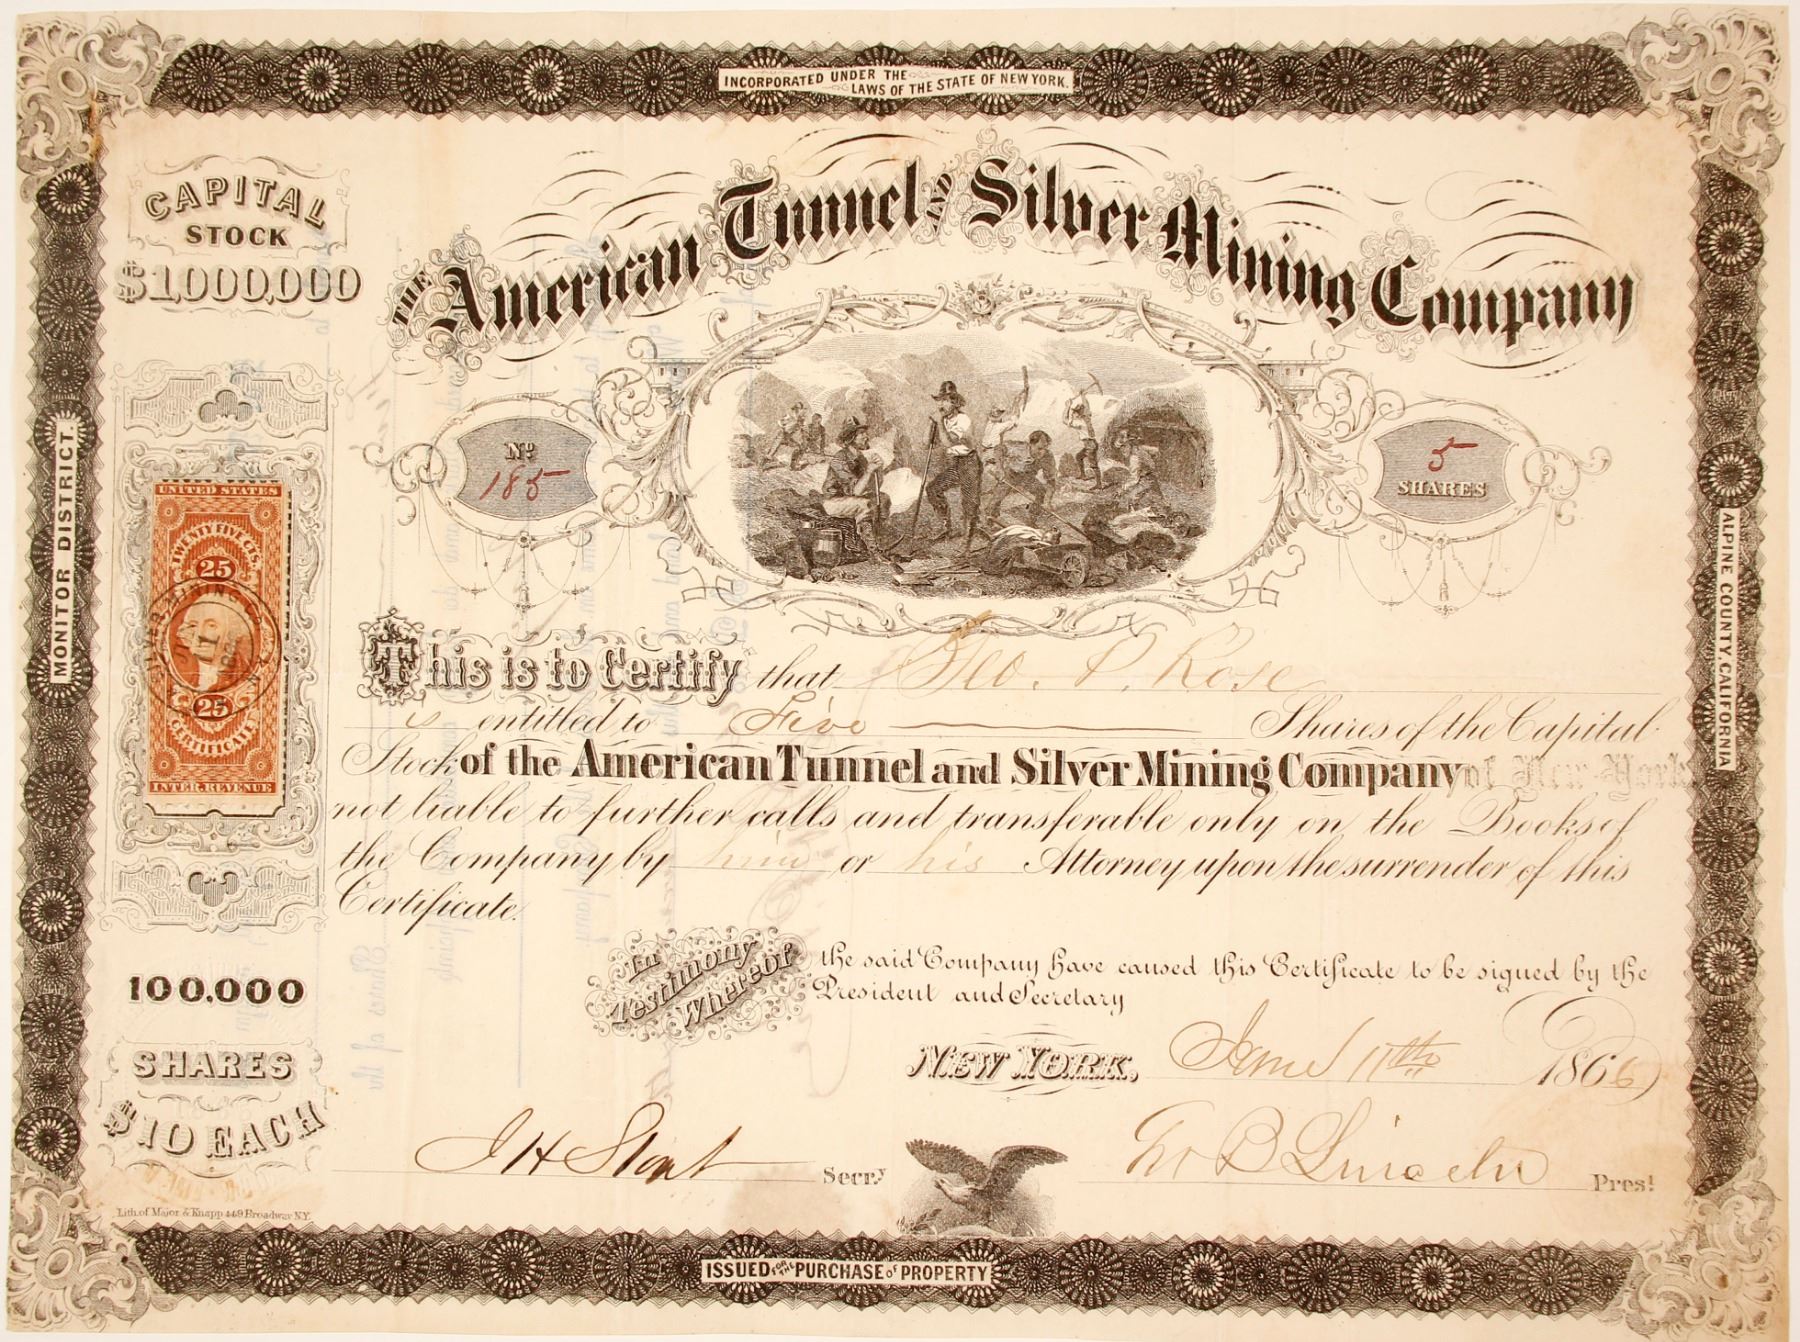 INCORPORATED UNDER THE LAWS OF THE STATE OF NEW YORK.
CAPITAL
STOCK
$1,000,000
THE American Tunnel AND Silver Mining Company
MONITOR DISTRICT.
ALPINE COUNTY, CALIFORNIA
Nº
185
5
SHARES
UNITED STATES
TWENTY FIVE CTS.
25
SILVER MINING CO.
25
CERTIFICATE
INTER. REVENUE
This is to Certify that Geo. P. Rose
is entitled to Five Shares of the Capital
Stock of the American Tunnel and Silver Mining Company of New York
not liable to further calls and transferable only on the Books of
the Company by him or his Attorney upon the surrender of this
Certificate.
In Testimony Whereof the said Company have caused this Certificate to be signed by the
President and Secretary
100,000
SHARES
$10 EACH
NEW YORK, 11th 1866
J H Stout Secr.y
B Lincoln Pres.t
Lith. of Major & Knapp 449 Broadway N.Y.
ISSUED FOR THE PURCHASE OF PROPERTY